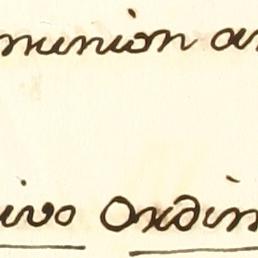 munion an
ivo Ordin